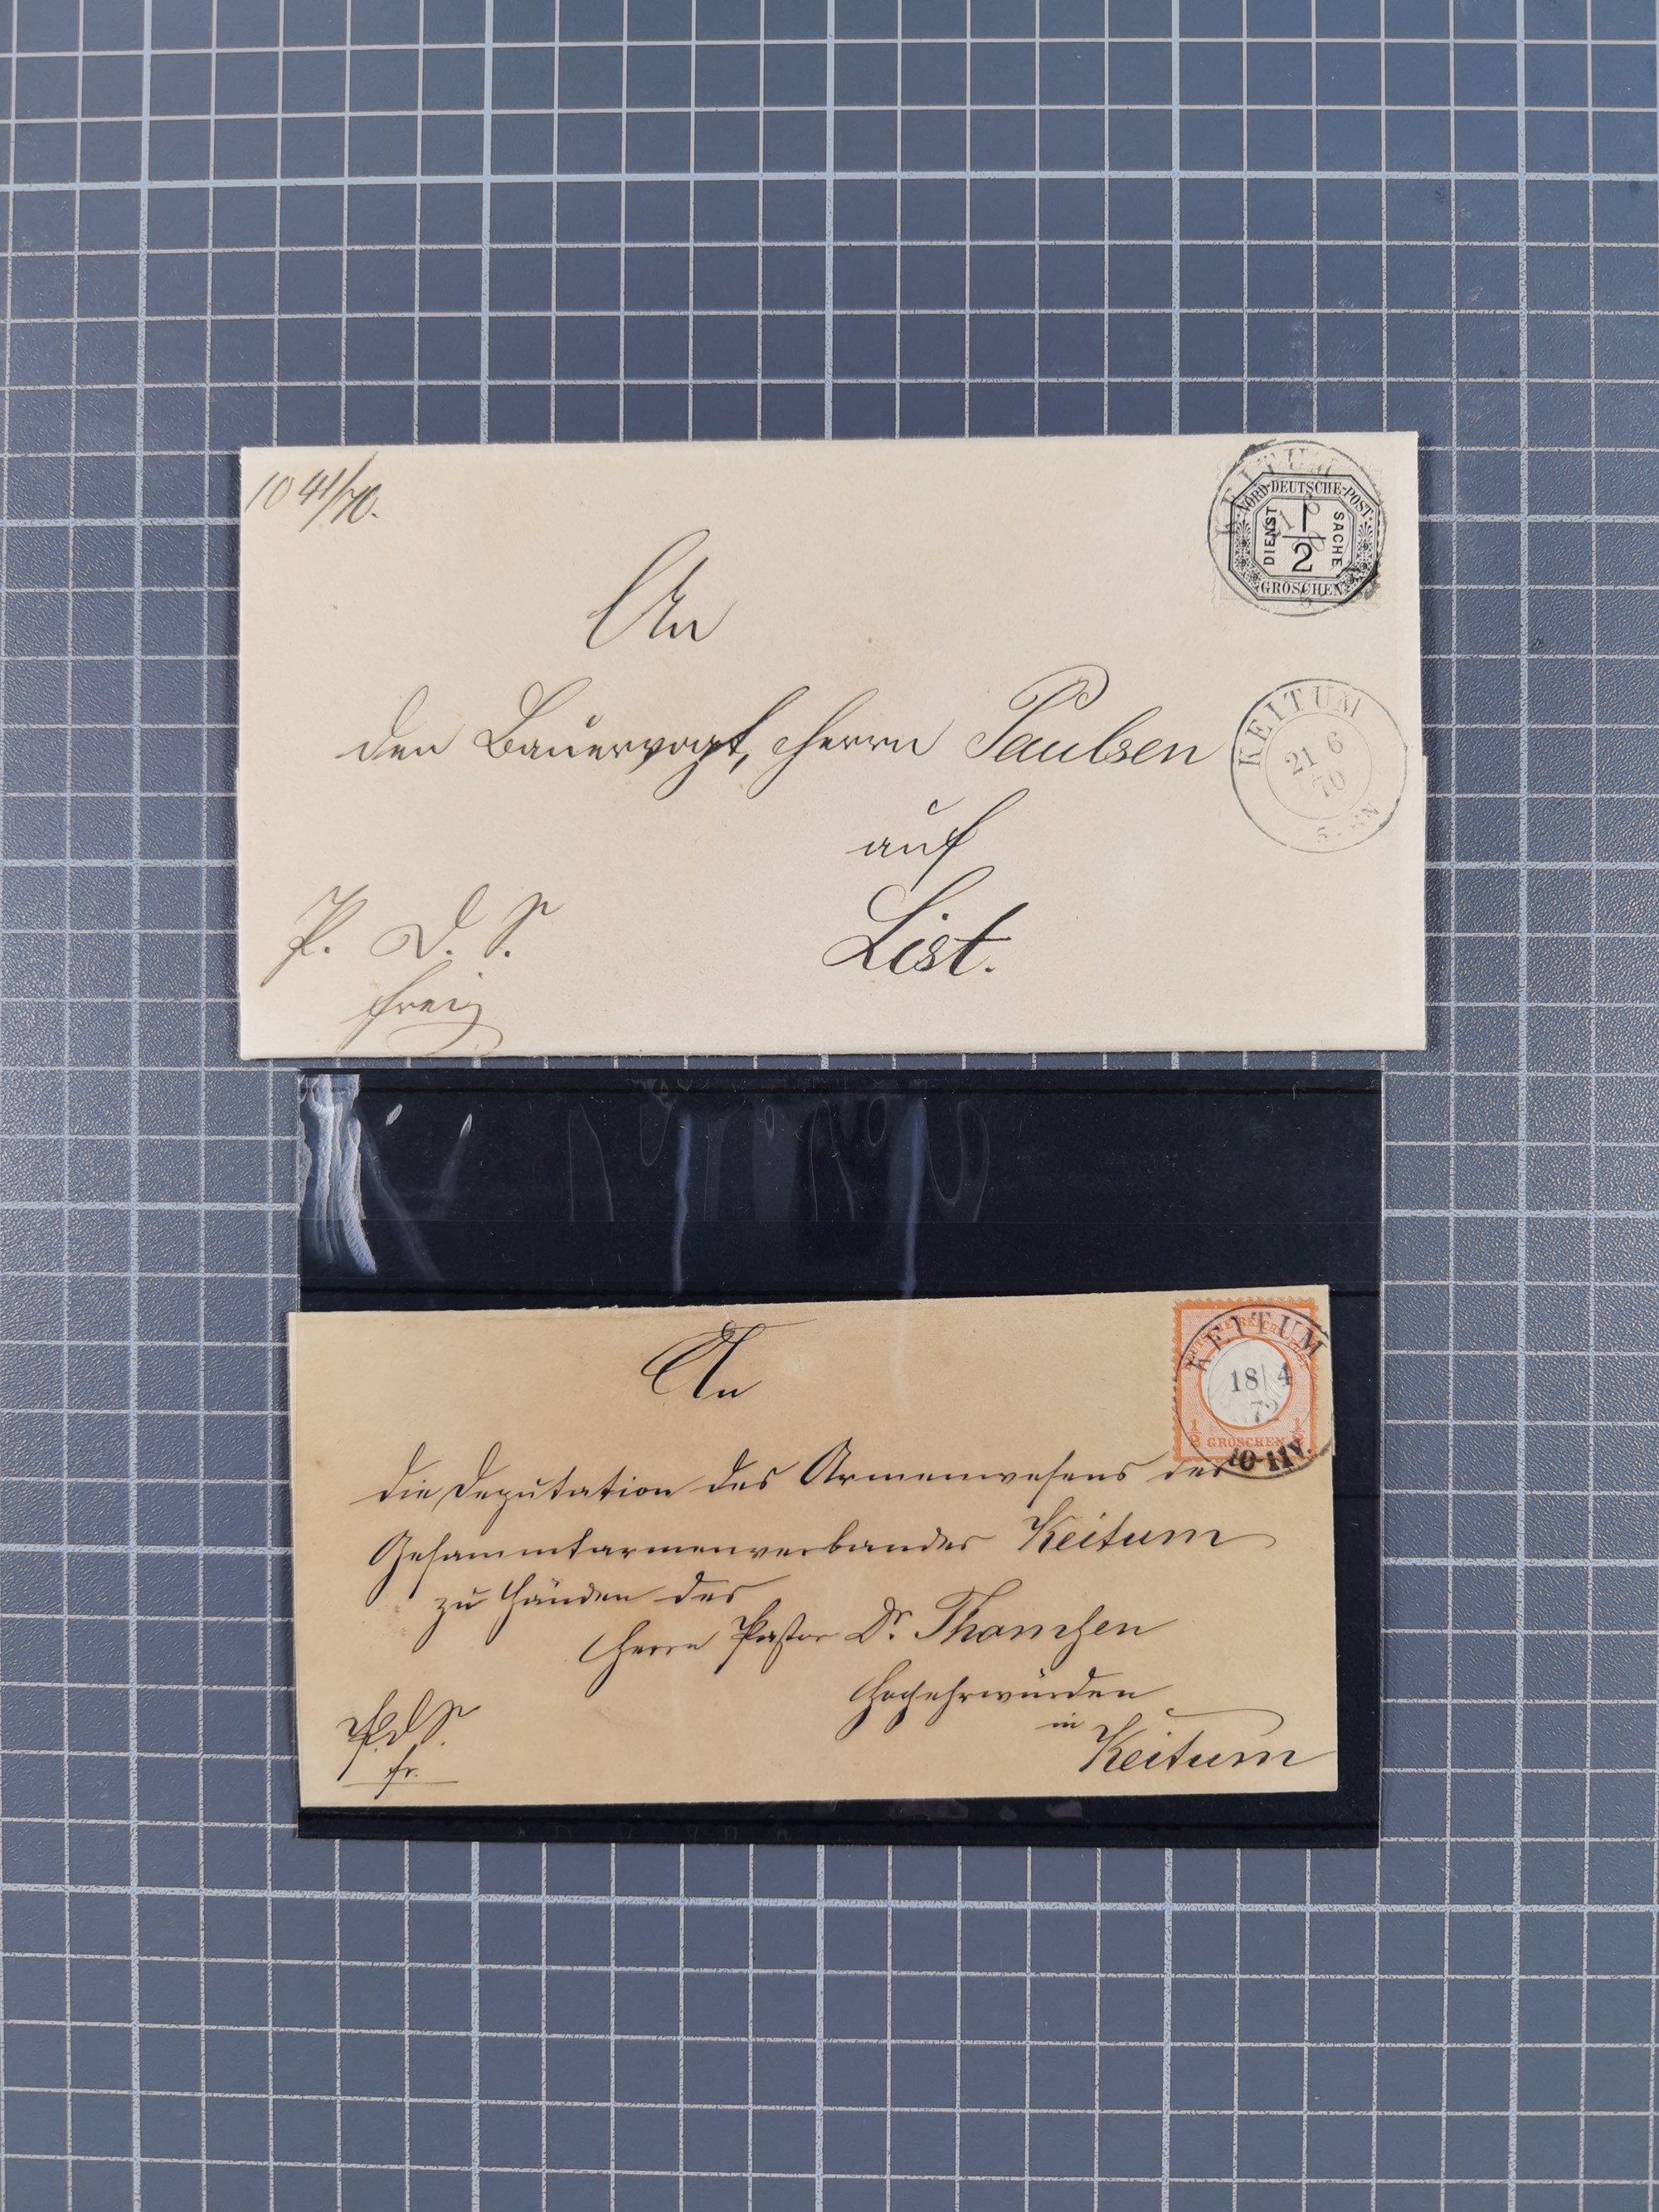 1041/70.
NORD-DEUTSCHE-POST
DIENST
1/2
SACHE
GROSCHEN
KEITUM
An
den Bauervogt, Herrn Paulsen
KEITUM
21 6
70
auf
List.
P. D. S.
frei
An
KEITUM
18 4
1/2 GROSCHEN 1/2
10-11V.
die Deputation des Armenwesens des
Gesammtarmenverbandes Keitum
zu Händen des
Herrn Pastor Dr. Thomsen
Hochehrwürden
in
Keitum
P.D.S.
fr.